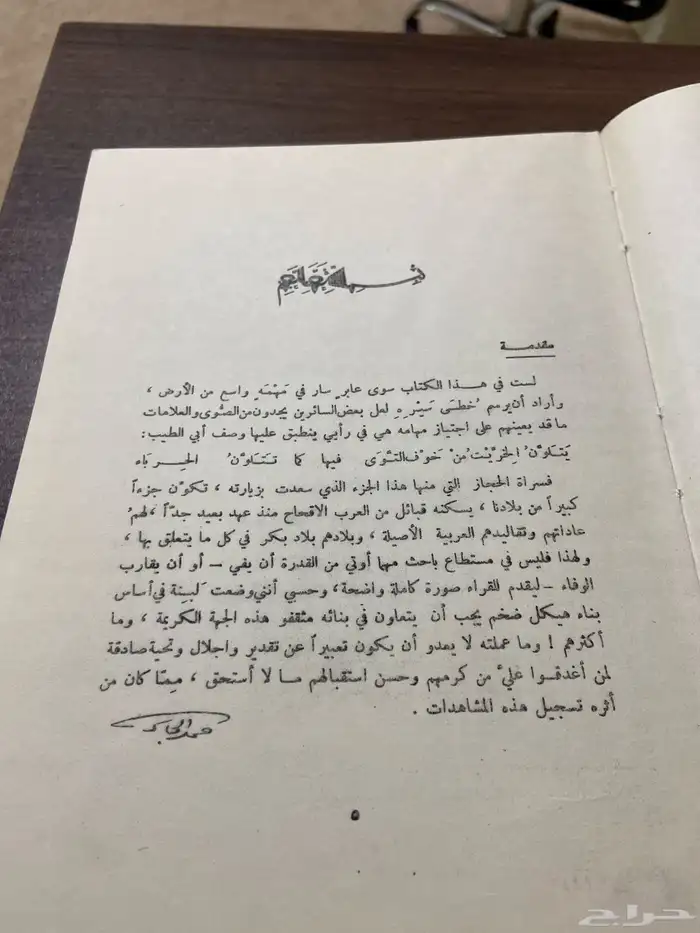 مقدمة
لست في هذا الكتاب سوى عابرٍ سار في مَهْمَهٍ واسع من الأرض ،
وأراد أن يرسم خُطَى سَيْرِهِ لعل بعض السائرين يجدون من الصُّوى والعلامات
ما قد يعينهم على اجتياز مهامه هي في رأيي ينطبق عليها وصف أبي الطيب :
يَتَلَوَّنُ الخِرِّيْتُ مِنْ خَوْفِ التَّوَى فيها كما تَتَلَوَّنُ الحِرْبَاء
فسراة الحجاز التي منها هذا الجزء الذي سعدت بزيارته ، تكوِّن جزءاً
كبيراً من بلادنا ، يسكنه قبائل من العرب الاقحاح منذ عهد بعيد جدّاً ، لهمْ
عاداتهم وتقاليدهم العربية الأصيلة ، وبلادهم بلاد بكر في كل ما يتعلق بها ،
ولهذا فليس في مستطاع باحث مهما أوتي من القدرة أن يفي – أو أن يقارب
الوفاء – ليقدم للقراء صورة كاملة واضحة ، وحسبي أنني وضعت لَبِنة في أساس
بناء هيكل ضخم يجب أن يتعاون في بنائه مثقفو هذه الجهة الكريمة ، وما
أكثرهم ! وما عملته لا يعدو أن يكون تعبيراً عن تقدير واجلال وتحية صادقة
لمن أغدقوا عليَّ من كرمهم وحسن استقبالهم مـا لا أستحق ، مِمّا كان من
أثره تسجيل هذه المشاهدات .
حمد الجاسر
٥
حراج